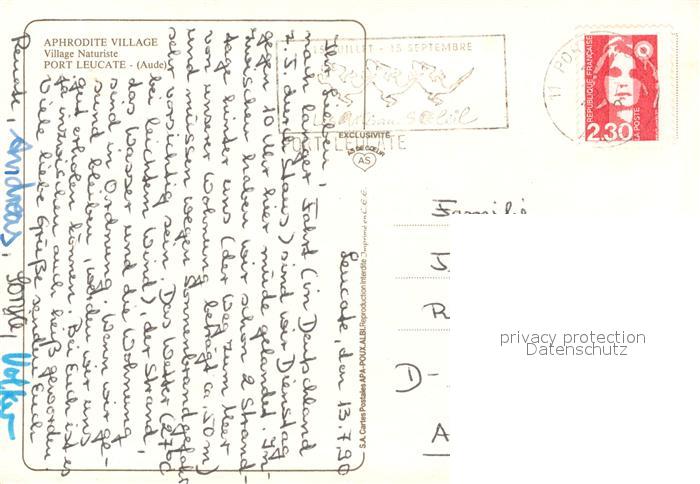 APHRODITE VILLAGE
Village Naturiste
PORT LEUCATE - (Aude)
15 JUILLET - 15 SEPTEMBRE
PORT LEUCATE
EXCLUSIVITÉ
AS DE CŒUR
AS
RÉPUBLIQUE FRANÇAISE
2,30
LA POSTE
S.A. Cartes Postales APA-POUX, ALBI. Reproduction Interdite
Leucate, den 13.7.90
Ihr Lieben,
nach langer Fahrt (in Deutschland
z.T. durch Staus) sind wir Dienstag
gegen 10 Uhr hier müde gelandet. In-
zwischen haben wir schon 2 Strand-
tage hinter uns (der Weg zum Meer
von unserer Wohnung beträgt ca. 50 m)
und müssen wegen Sonnenbrandgefahr
sehr vorsichtig sein. Das Wetter (27°C
bei leichtem Wind), der Strand,
das Wasser und die Wohnung
sind in Ordnung. Wenn wir ge-
sund bleiben, werden wir uns
gut erholen können. Bei Euch ist es
ja inzwischen auch heiß geworden.
Viele liebe Grüße senden Euch
Renate, Andreas, Sonja, Volker
Familie
R
D-
A
privacy protection
Datenschutz